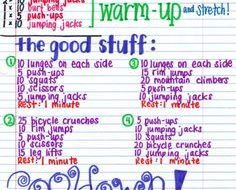 10 jumping jacks
10 burpees
5 push-ups
10 jumping jacks
warm-up and stretch!
the good stuff:
1
10 lunges on each side
5 push-ups
10 squats
10 scissors
5 jumping jacks
Rest: 1 minute
2
25 bicycle crunches
10 rim jumps
5 push-ups
10 scissors
15 leg lifts
Rest: 1 minute
3
10 lunges on each side
15 rim jumps
20 mountain climbers
5 push-ups
10 squats
Rest: 1 minute
4
5 push-ups
10 jumping jacks
10 squats
20 bicycle crunches
10 jumping jacks
Rest: 1 minute
cooldown!